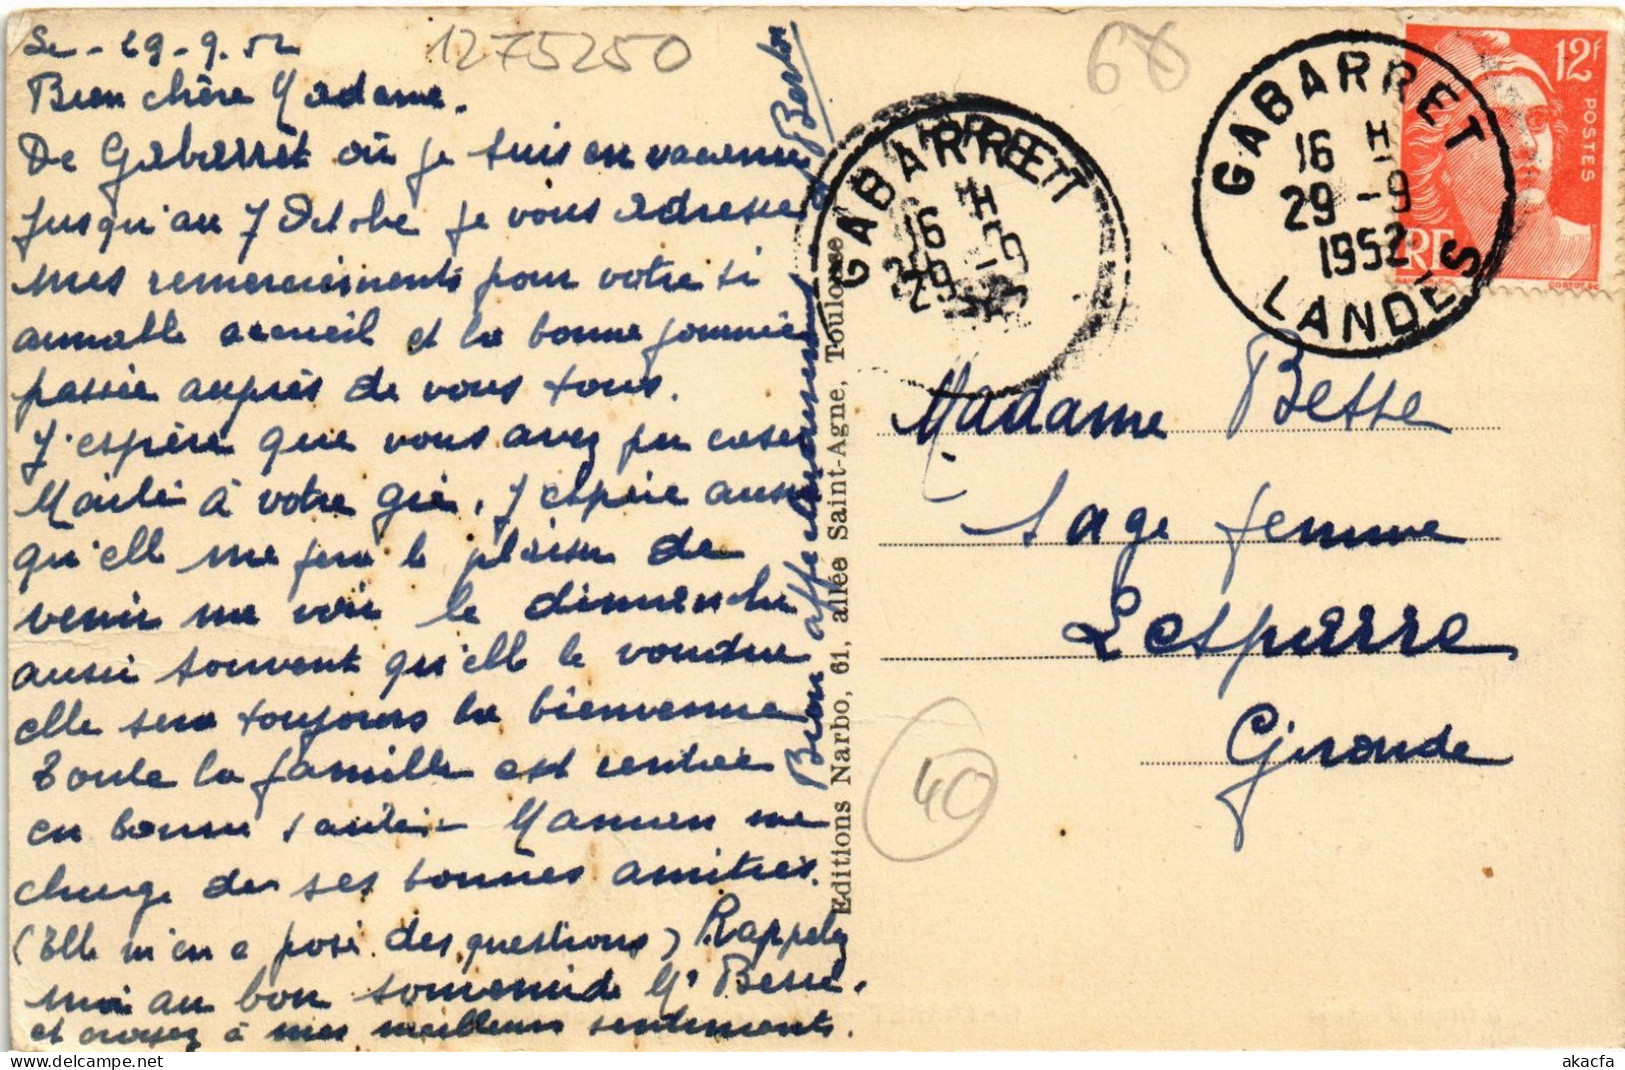 Le - 29-9.52
Bien chère Madame.
De Gabarret où je suis en vacances
jusqu'au 7 Octobre je vous adresse
mes remerciements pour votre si
aimable accueil et la bonne journée
passée auprès de vous tous.
J'espère que vous avez pu caser
à votre gré, J'espère aussi
qu'elle me fera le plaisir de
venir me voir le dimanche
aussi souvent qu'elle le voudra
elle sera toujours la bienvenue
Toute la famille est rentrée
en bonne santé - Maman me
charge de ses bonnes amitiés.
(Elle m'en a posé des questions) Rappelez
moi au bon souvenir de Mr Besse.
et croyez à mes meilleurs sentiments.
Bien affectueusement
1275250
68
40
Editions Narbo, 61, allée Saint-Agne, Toulouse
GABARRET
16 H
29 -9
GABARRET
16 H
29 -9
1952
LANDES
12F
POSTES
RF
Madame Besse
Sage femme
Lesparre
Gironde
akacfa